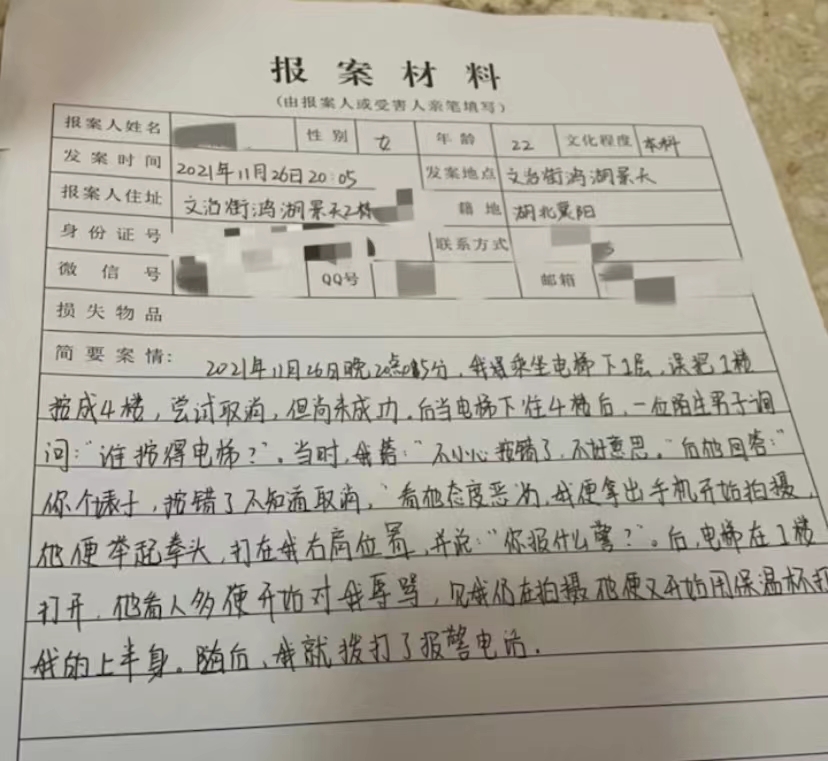 报案材料
(由报案人或受害人亲笔填写)
报案人姓名 性别 女 年龄 22 文化程度 本科
发案时间 2021年11月26日20:05 发案地点 文治街鸿湖景天
报案人住址 文治街鸿湖景天2栋 籍地 湖北襄阳
身份证号 联系方式
微信号 QQ号 邮箱
损失物品
简要案情: 2021年11月26日晚20点05分,我乘坐电梯下1层,误把1楼
按成4楼,尝试取消,但尚未成功。后当电梯下往4楼后,一位陌生男子询
问:"谁按得电梯?"。当时,我答:"不小心按错了,不好意思。"后他回答:"
你个婊子,按错了不知道取消,"看他态度恶劣,我便拿出手机开始拍摄,
他便举起拳头,打在我右肩位置,并说:"你报什么警?"。后,电梯在1楼
打开,他看人多便开始对我辱骂,见我仍在拍摄他便又开始用保温杯打
我的上半身。随后,我就拨打了报警电话.